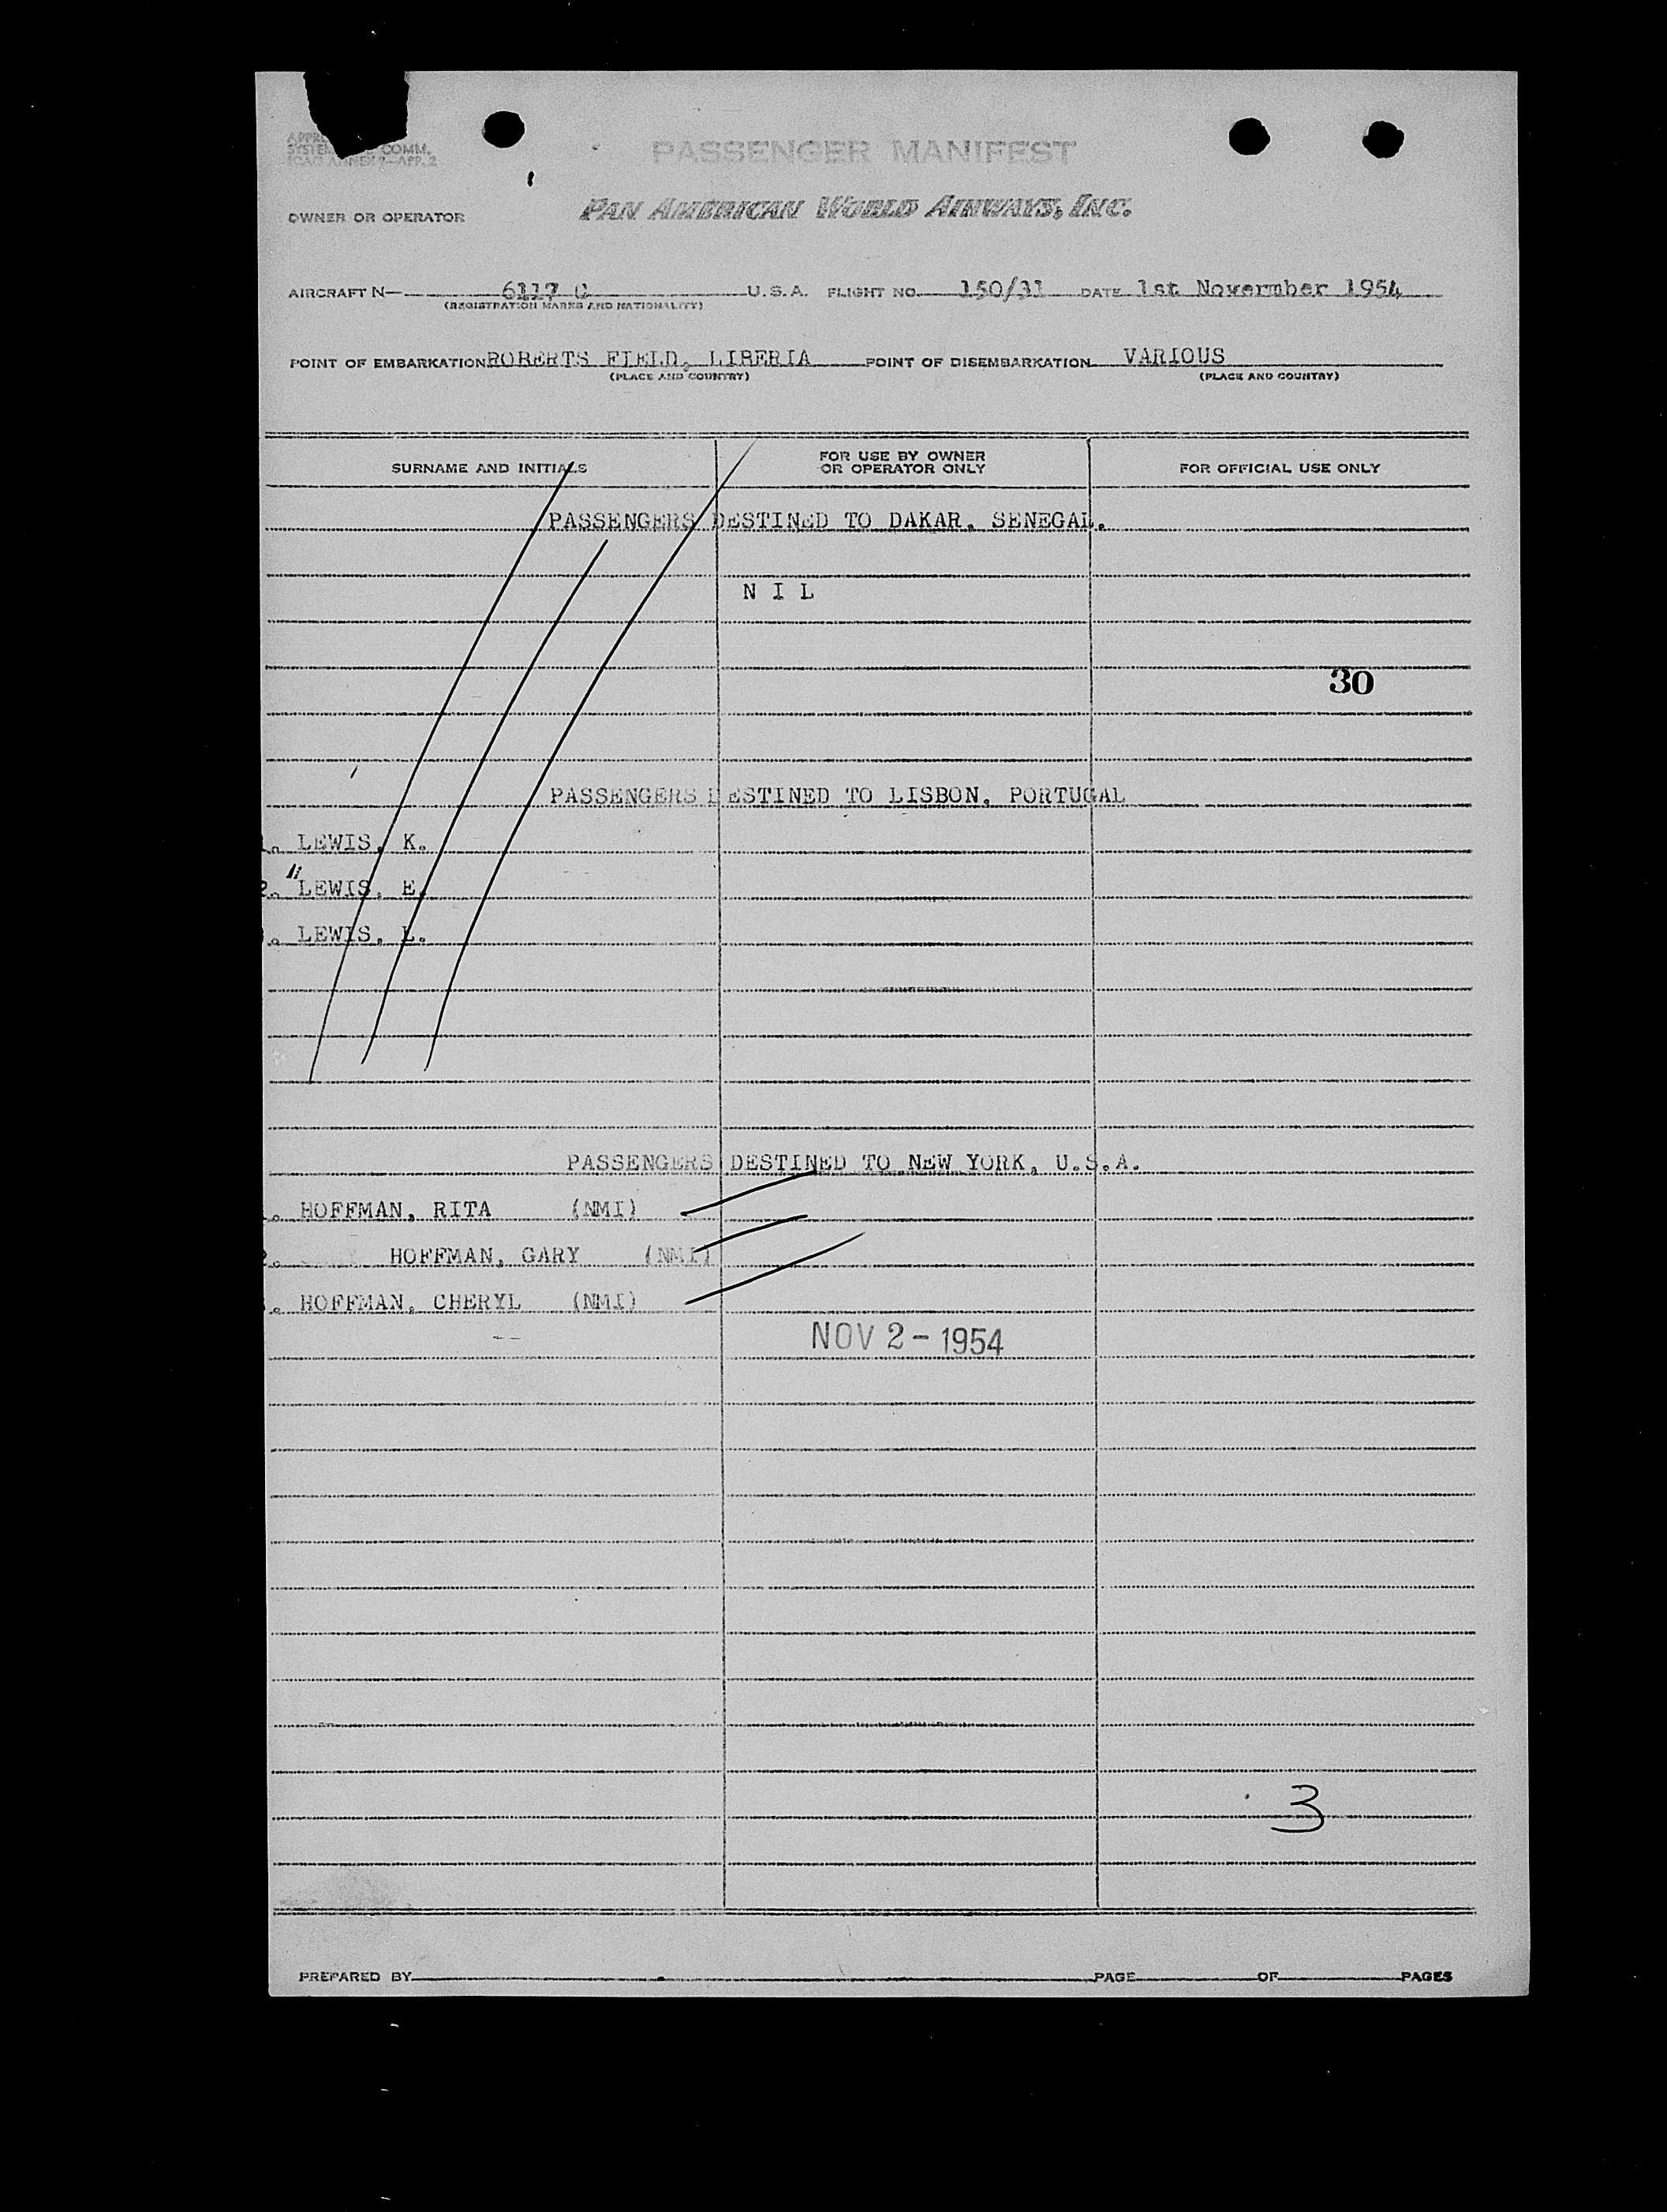 PASSENGER MANIFEST
COMM.
ICAO ANNEX 9—APP. 2
OWNER OR OPERATOR PAN AMERICAN WORLD AIRWAYS, INC.
AIRCRAFT N— 6117 C U.S.A. FLIGHT NO. 150/31 DATE 1st Novermber 1954
(REGISTRATION MARKS AND NATIONALITY)
POINT OF EMBARKATION ROBERTS FIELD, LIBERIA POINT OF DISEMBARKATION VARIOUS
(PLACE AND COUNTRY) (PLACE AND COUNTRY)
SURNAME AND INITIALS FOR USE BY OWNER OR OPERATOR ONLY FOR OFFICIAL USE ONLY
PASSENGERS DESTINED TO DAKAR, SENEGAL.
N I L
30
PASSENGERS DESTINED TO LISBON, PORTUGAL
1. LEWIS, K.
2. LEWIS, E.
3. LEWIS, L.
PASSENGERS DESTINED TO NEW YORK, U.S.A.
1. HOFFMAN, RITA (NMI)
2. HOFFMAN, GARY (NMI)
3. HOFFMAN, CHERYL (NMI)
NOV 2 - 1954
3
PREPARED BY PAGE OF PAGES